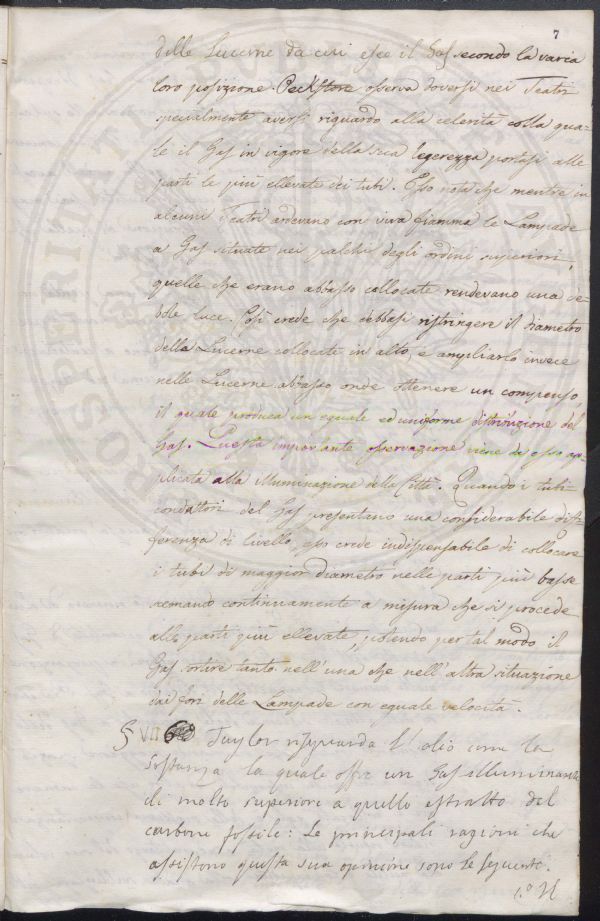 7
delle Lucerne da cui esce il Gas secondo la varia
loro posizione. Peckstone osserva doversi nei Teatri
specialmente aversi riguardo alla celerità colla qua-
le il Gas in vigore della sua legerezza portasi alle
parti le più ellevate dei tubi. Esso nota che mentre in
alcuni Teatri ardevano con viva fiamma le Lampade
a Gas situate nei palchi degli ordini superiori,
quelle che erano abbasso collocate rendevano una de-
bole luce. Così crede che debbasi ristringere il diametro
della Lucerne collocate in alto, e ampliarlo invece
nelle Lucerne abbasso onde ottenere un compenso
il quale produca un eguale ed uniforme distribuzione del
Gas. Questa importante osservazione viene da esso ap-
plicata alla illuminazione della Città. Quando i tubi
condottori del Gas presentano una considerabile dif-
ferenza di livello, esso crede indispensabile di collocare
i tubi di maggior diametro nelle parti più basse
scemando continuamente a misura che si procede
alle parti più ellevate, potendo per tal modo il
Gas sortire tanto nell'una che nell'altra situazione
dai fori delle Lampade con eguale velocità.
§ VII Taylor risguarda l'olio come la
sostanza la quale offre un Gas illuminante
di molto superiore a quello estratto del
carbone fossile: Le principali ragioni che
assistono questa sua opinione sono le seguenti.
1.° Il